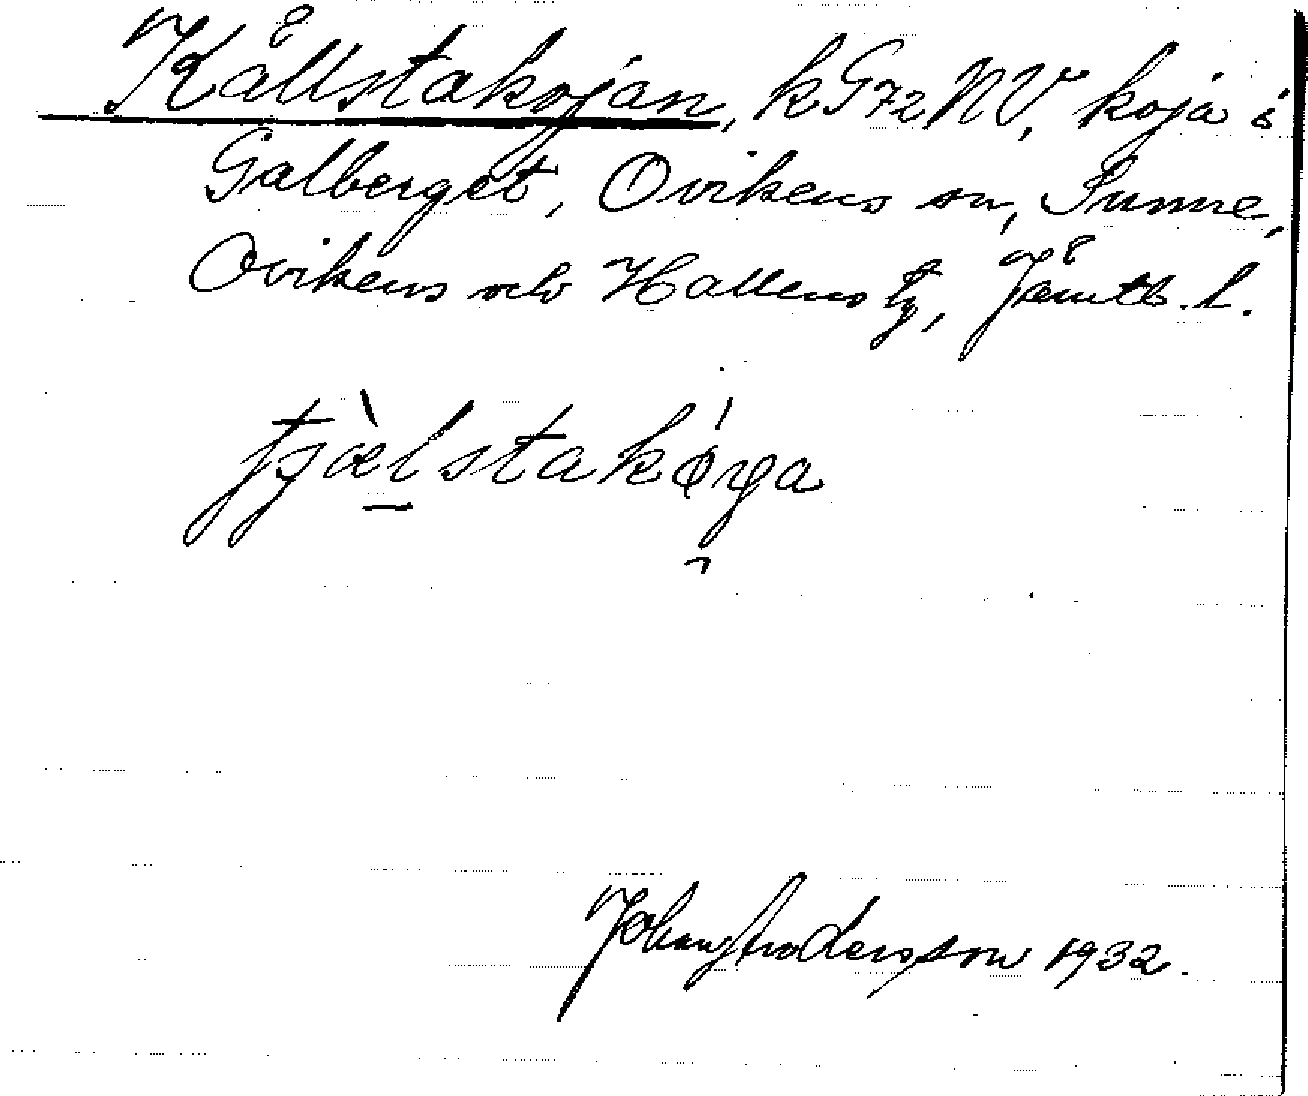 Källstakojan, k G72 NV, koja i
Galberget, Ovikens sn, Sunne,
Ovikens och Hallens tg, Jämtl. l.
Johan Andersson 1932.